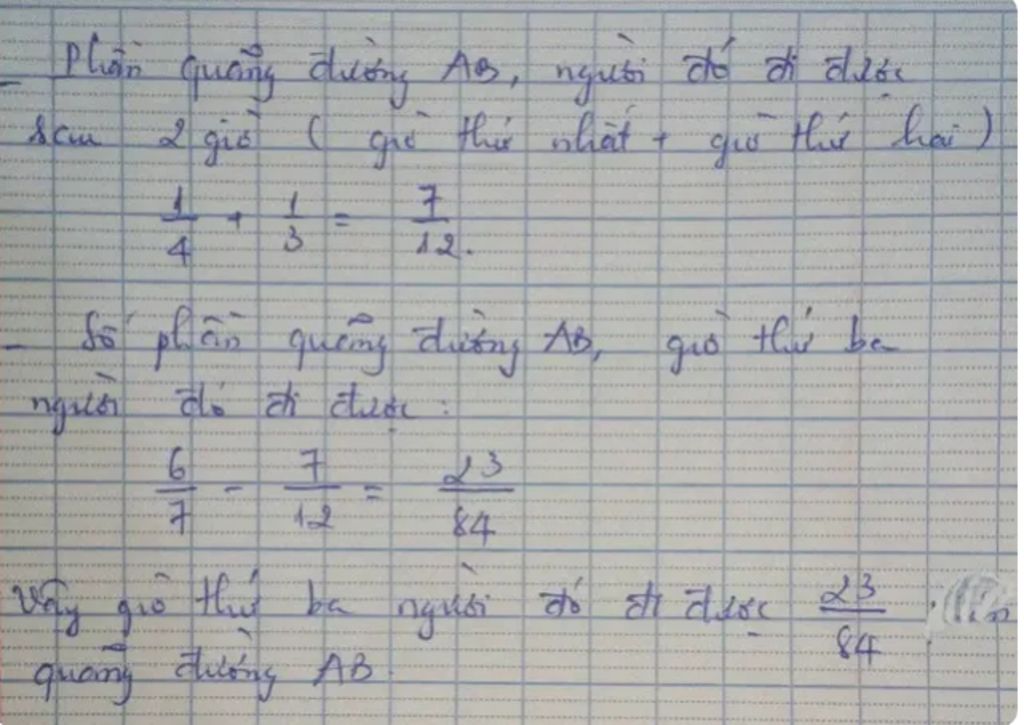 - Phần quãng đường AB, người đó đi được
sau 2 giờ ( giờ thứ nhất + giờ thứ hai )
1/4 + 1/3 = 7/12.
- Số phần quãng đường AB, giờ thứ ba
người đó đi được:
6/7 - 7/12 = 23/84
Vậy giờ thứ ba người đó đi được 23/84
quãng đường AB.